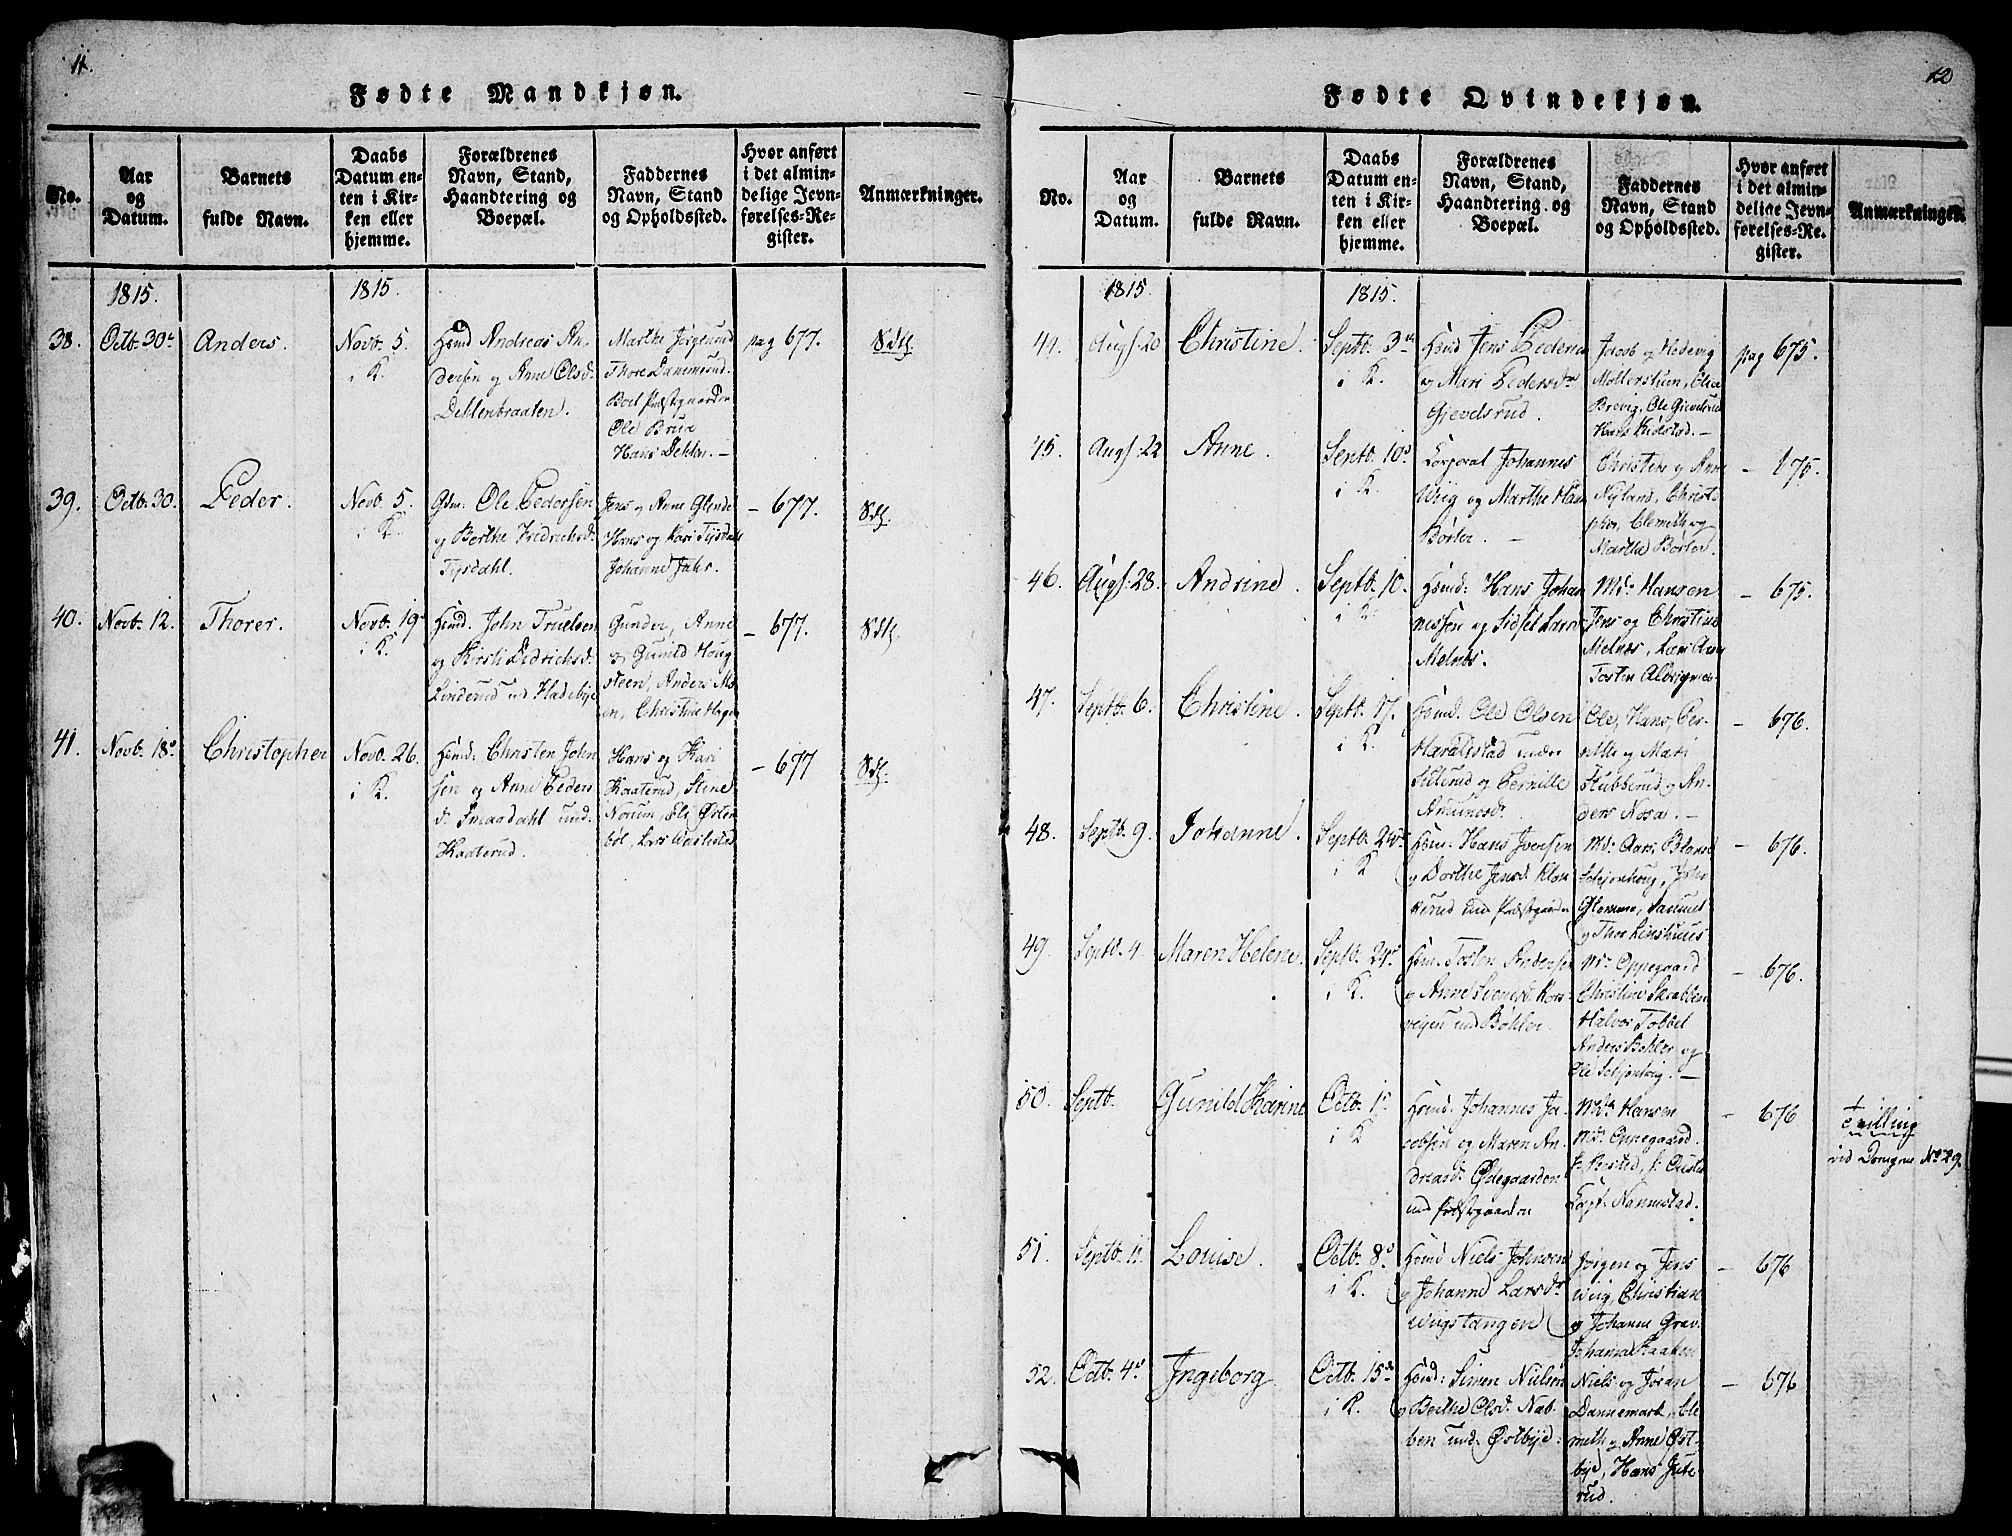 11.
Fødte Mandkjøn.
No.
Aar
og
Datum.
Barnets
fulde Navn.
Daabs
Datum en-
ten i Kir-
ken eller
hjemme.
Forældrenes
Navn, Stand,
Haandtering og
Boepæl.
Faddernes
Navn, Stand
og Opholdssted.
Hvor anført
i det almin-
delige Jevn-
førelses-Re-
gister.
Anmærkninger.
1815.
1815.
38.
Octb. 30
Anders.
Novb. 5.
i K.
Hsmd Andreas An-
dersen og Anne Olsd.
Dehlenbraaten.
Marthe Jørgerud
Thore Dammerud.
Boel Præstgaarden
Ole Brue
Hans Dehlen. —
pag 677.
39.
Octb. 30.
Peder.
Novb. 5.
i K.
Gdm. Ole Pedersen
og Berthe Fredrichsd.
Tysdahl.
Jens og Anne Glende
Hans og Kari Tysdahl
Johanne Jahr.
— 677.
40.
Novb. 12.
Thorer.
Novb. 19
i K.
Hsmd. John Truelsen
og Kirsti Didrichsd.
Linderud und Hadebye
Gunder, Anne
og Gunild Houg
steen, Anders Mo-
en, Christine Hagen
— 677.
41.
Novb. 18
Christopher
Novb. 26.
i K.
Hsmd. Christen John
sen og Anne Peders
d. Smaadahl und.
Kaaterud.
Hans og Kari
Kaaterud, Stine
Norum, Eli Østen
bøl, Lars
— 677
12
Fødte Qvindekjøn.
No.
Aar
og
Datum.
Barnets
fulde Navn.
Daabs
Datum en-
ten i Kir-
ken eller
hjemme.
Forældrenes
Navn, Stand,
Haandtering og
Boepæl.
Faddernes
Navn, Stand
og Opholdssted.
Hvor anført
i det almin-
delige Jevn-
førelses-Re-
gister.
Anmærkninger.
1815.
1815.
44.
Augs. 20
Christine.
Septb. 3
i K.
Hsmd Jens Peders
og Mari Pedersdr
Gjevelsrud.
Jacob og Hedevig
Mollerstuen,
Brevig, Ole Gjevelsrud
Hans —
pag 675.
45.
Augs. 22
Anne.
Septb. 10
i K.
Corporal Johannes
Wiig og Marthe Hans
Børler. —
Christen og Anne
Nyland, Christo
pher, Clemeth og
Marthe Børler.
— 675.
46.
Augs. 28.
Andrine.
Septb. 10.
i K.
Hsmd: Hans Johan
nessen og Sidsel Lars
Melnes.
Md. Hansen
Jens og Christine
Melnes, Lars
Tosten
— 675.
47.
Septb. 6.
Christine.
Septb. 17.
i K.
Hsmd. Ole Olsen
Haraldstad under
og Pernille
Amundsd.
Ole, Hans, Per-
nille og Mari
Stubberud og An-
ders Nosa. —
— 676.
48.
Septb. 9.
Johanne.
Septb. 24
i K
Hsm. Hans Iversen
og Dorthe Jensd. Klom
kerud und Præstgaarden
Md. Aars,
Schjønhoug,
Glomme, Samuel
og Thor Linshuus
— 676.
49.
Septb. 4.
Maren Helene.
Septb. 24
i K.
Hsm. Tosten Andersen
og Anne Kors-
veigen und Bøhler.
Md. Oppegaard
Christine
Halvor Tobbel
Anders Bøhler og
Ole Schjønhoug. —
— 676.
50.
Septb.
Gunild Karine
Octb. 1
i K
Hsmd. Johannes Ja-
cobsen og Maren An-
dreasd. Ødegaarden
und Præstgaarden
Md. Hansen
Md. Oppegaard.
Capt. Nannestad.
— 676
Tvilling
vid Drengene No 29.
51.
Septb. 11.
Louise.
Octb. 8
i K.
Hsmd Niels Johnsen
og Johanne Larsdr
Wiigstangen
Jørgen og Jens
Wiig, Christian
og Johanne Grav.
Johanna Kaaken
— 676
52.
Octb. 4
Ingeborg
Octb. 15
i K.
Hsmd: Simen Nielsen
og Berthe Olsd. Nab-
ben und: Østbye.
Niels og Joran
Dannemark, Cle
meth og Anne Øst-
bye, Hans Jute
rud.
— 676